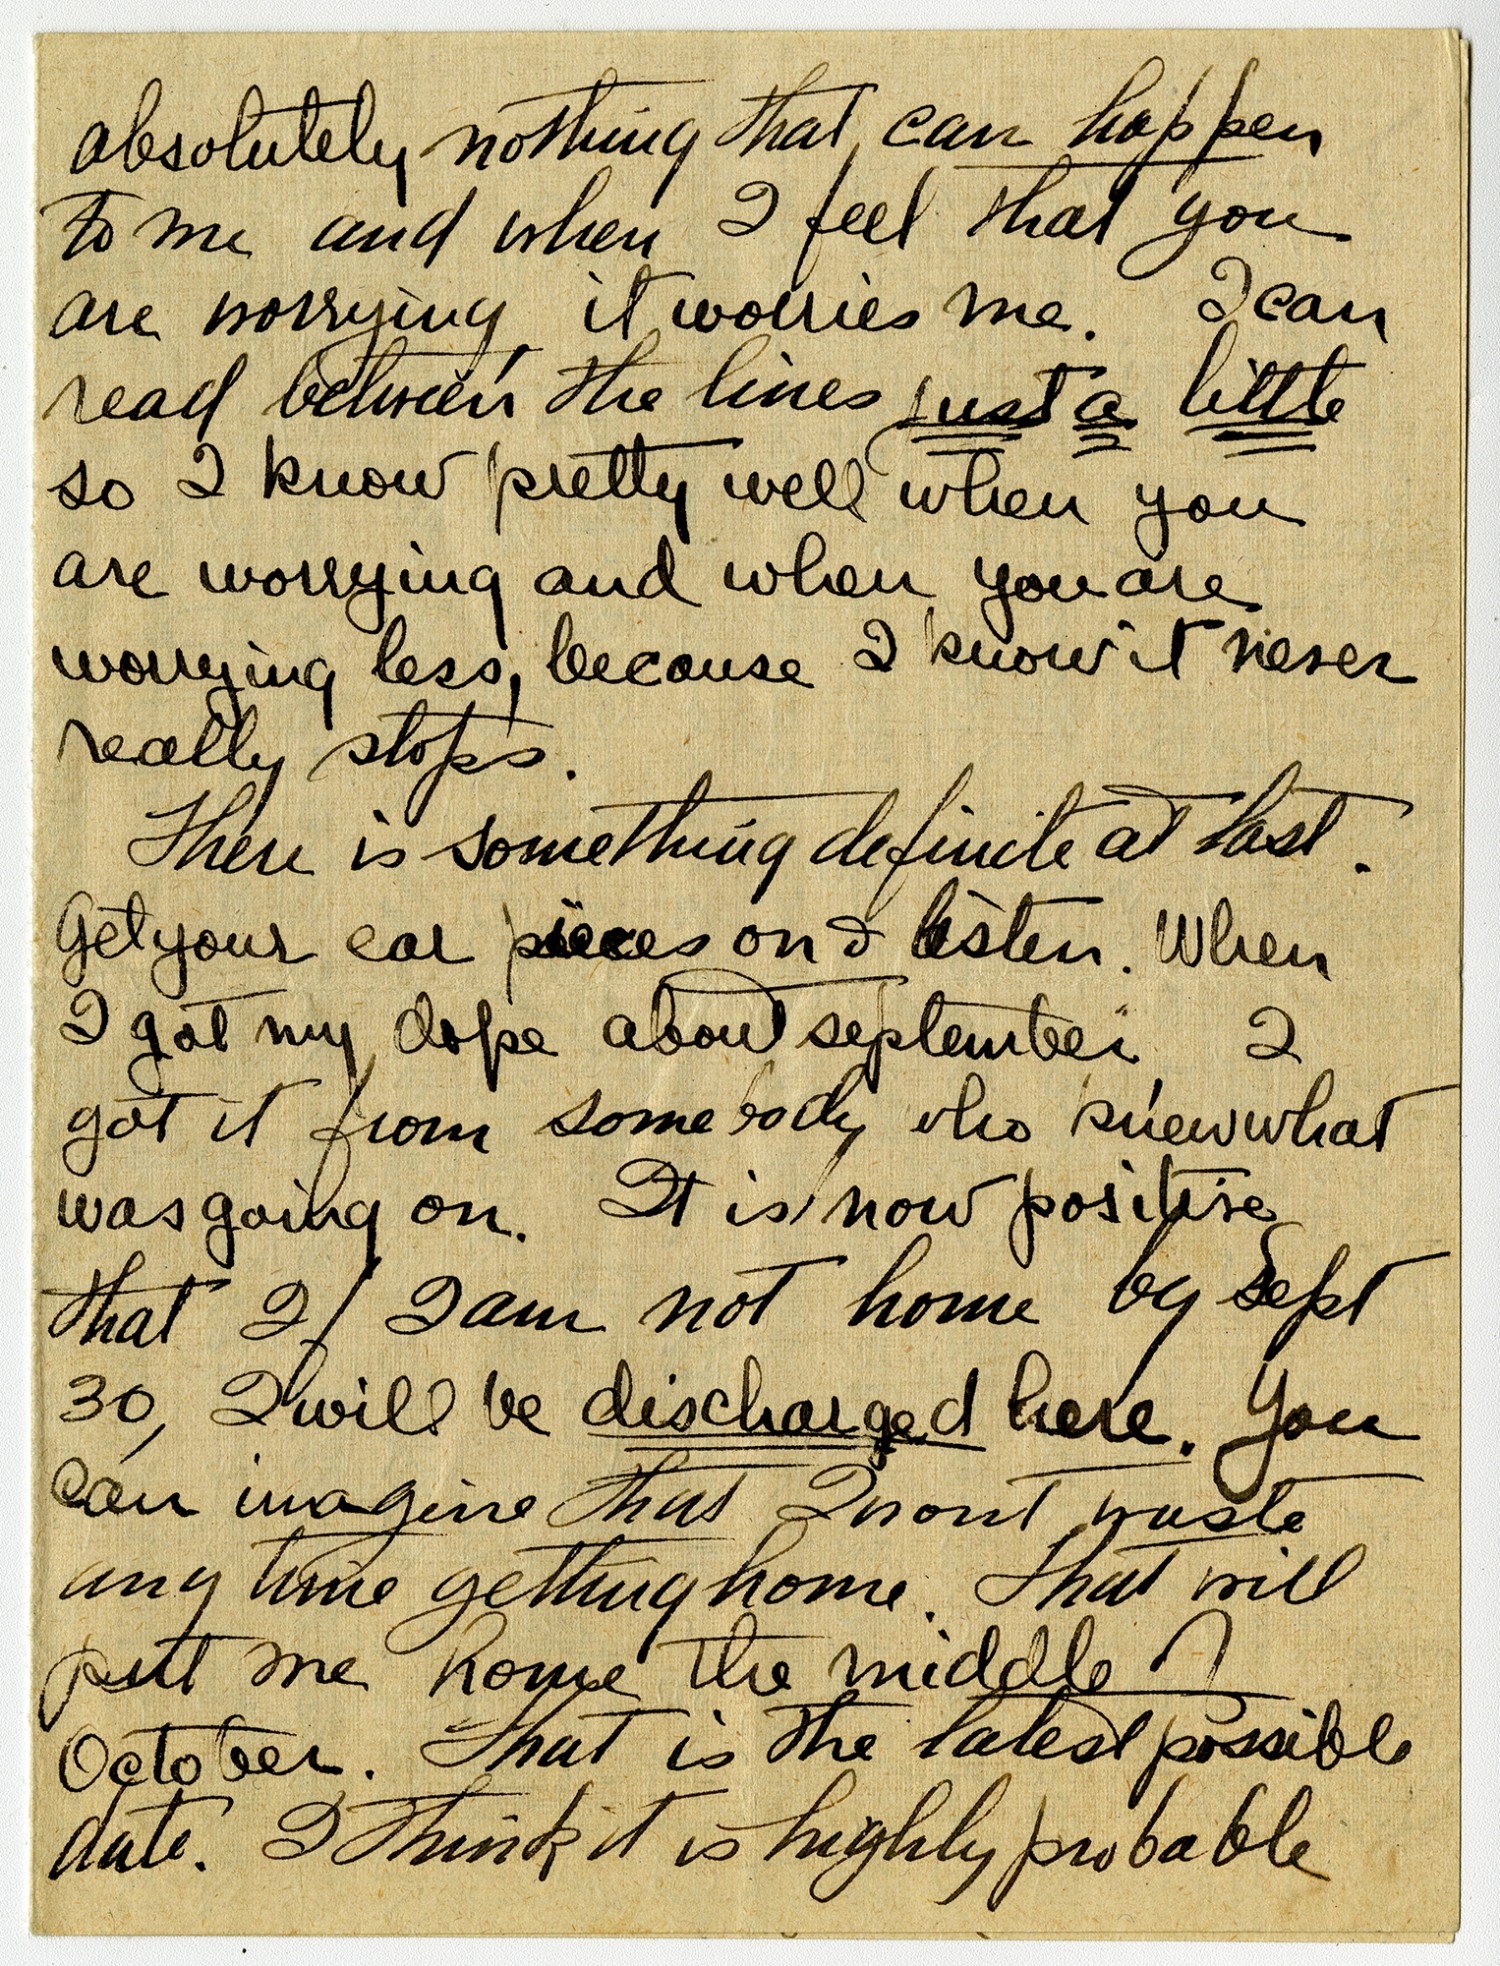 absolutely nothing that can happen
to me and when I feel that you
are worrying it worries me. I can
read between the lines just a little
so I know pretty well when you
are worrying and when you are
worrying less, because I know it never
really stops.
There is something definite at last.
Get your ear pieces on & listen. When
I got my dope about september, I
got it from somebody who knew what
was going on. It is now positive
that if I am not home by Sept
30, I will be discharged here. You
can imagine that I wont waste
any time getting home. That will
put me home the middle of
October. That is the latest possible
date. I think it is highly probable